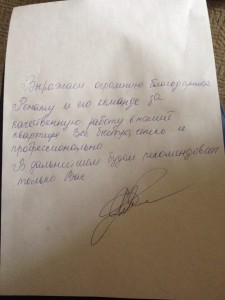 Выражаем огромную благодарность
Роману и его команде за
качественную работу в нашей
квартире Все быстро, четко и
профессионально
В дальнейшем будем рекомендовать
только Вас